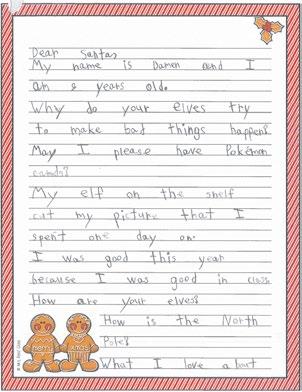 Dear Santa
My name is Damen and I
am 8 years old.
Why do your elves try
to make bad things happen?
May I please have Pokémon
cards?
My elf on the shelf
cut my picture that I
spent one day on.
I was good this year
because I was good in class
How are your elves?
How is the North
Pole?
What I love a bout